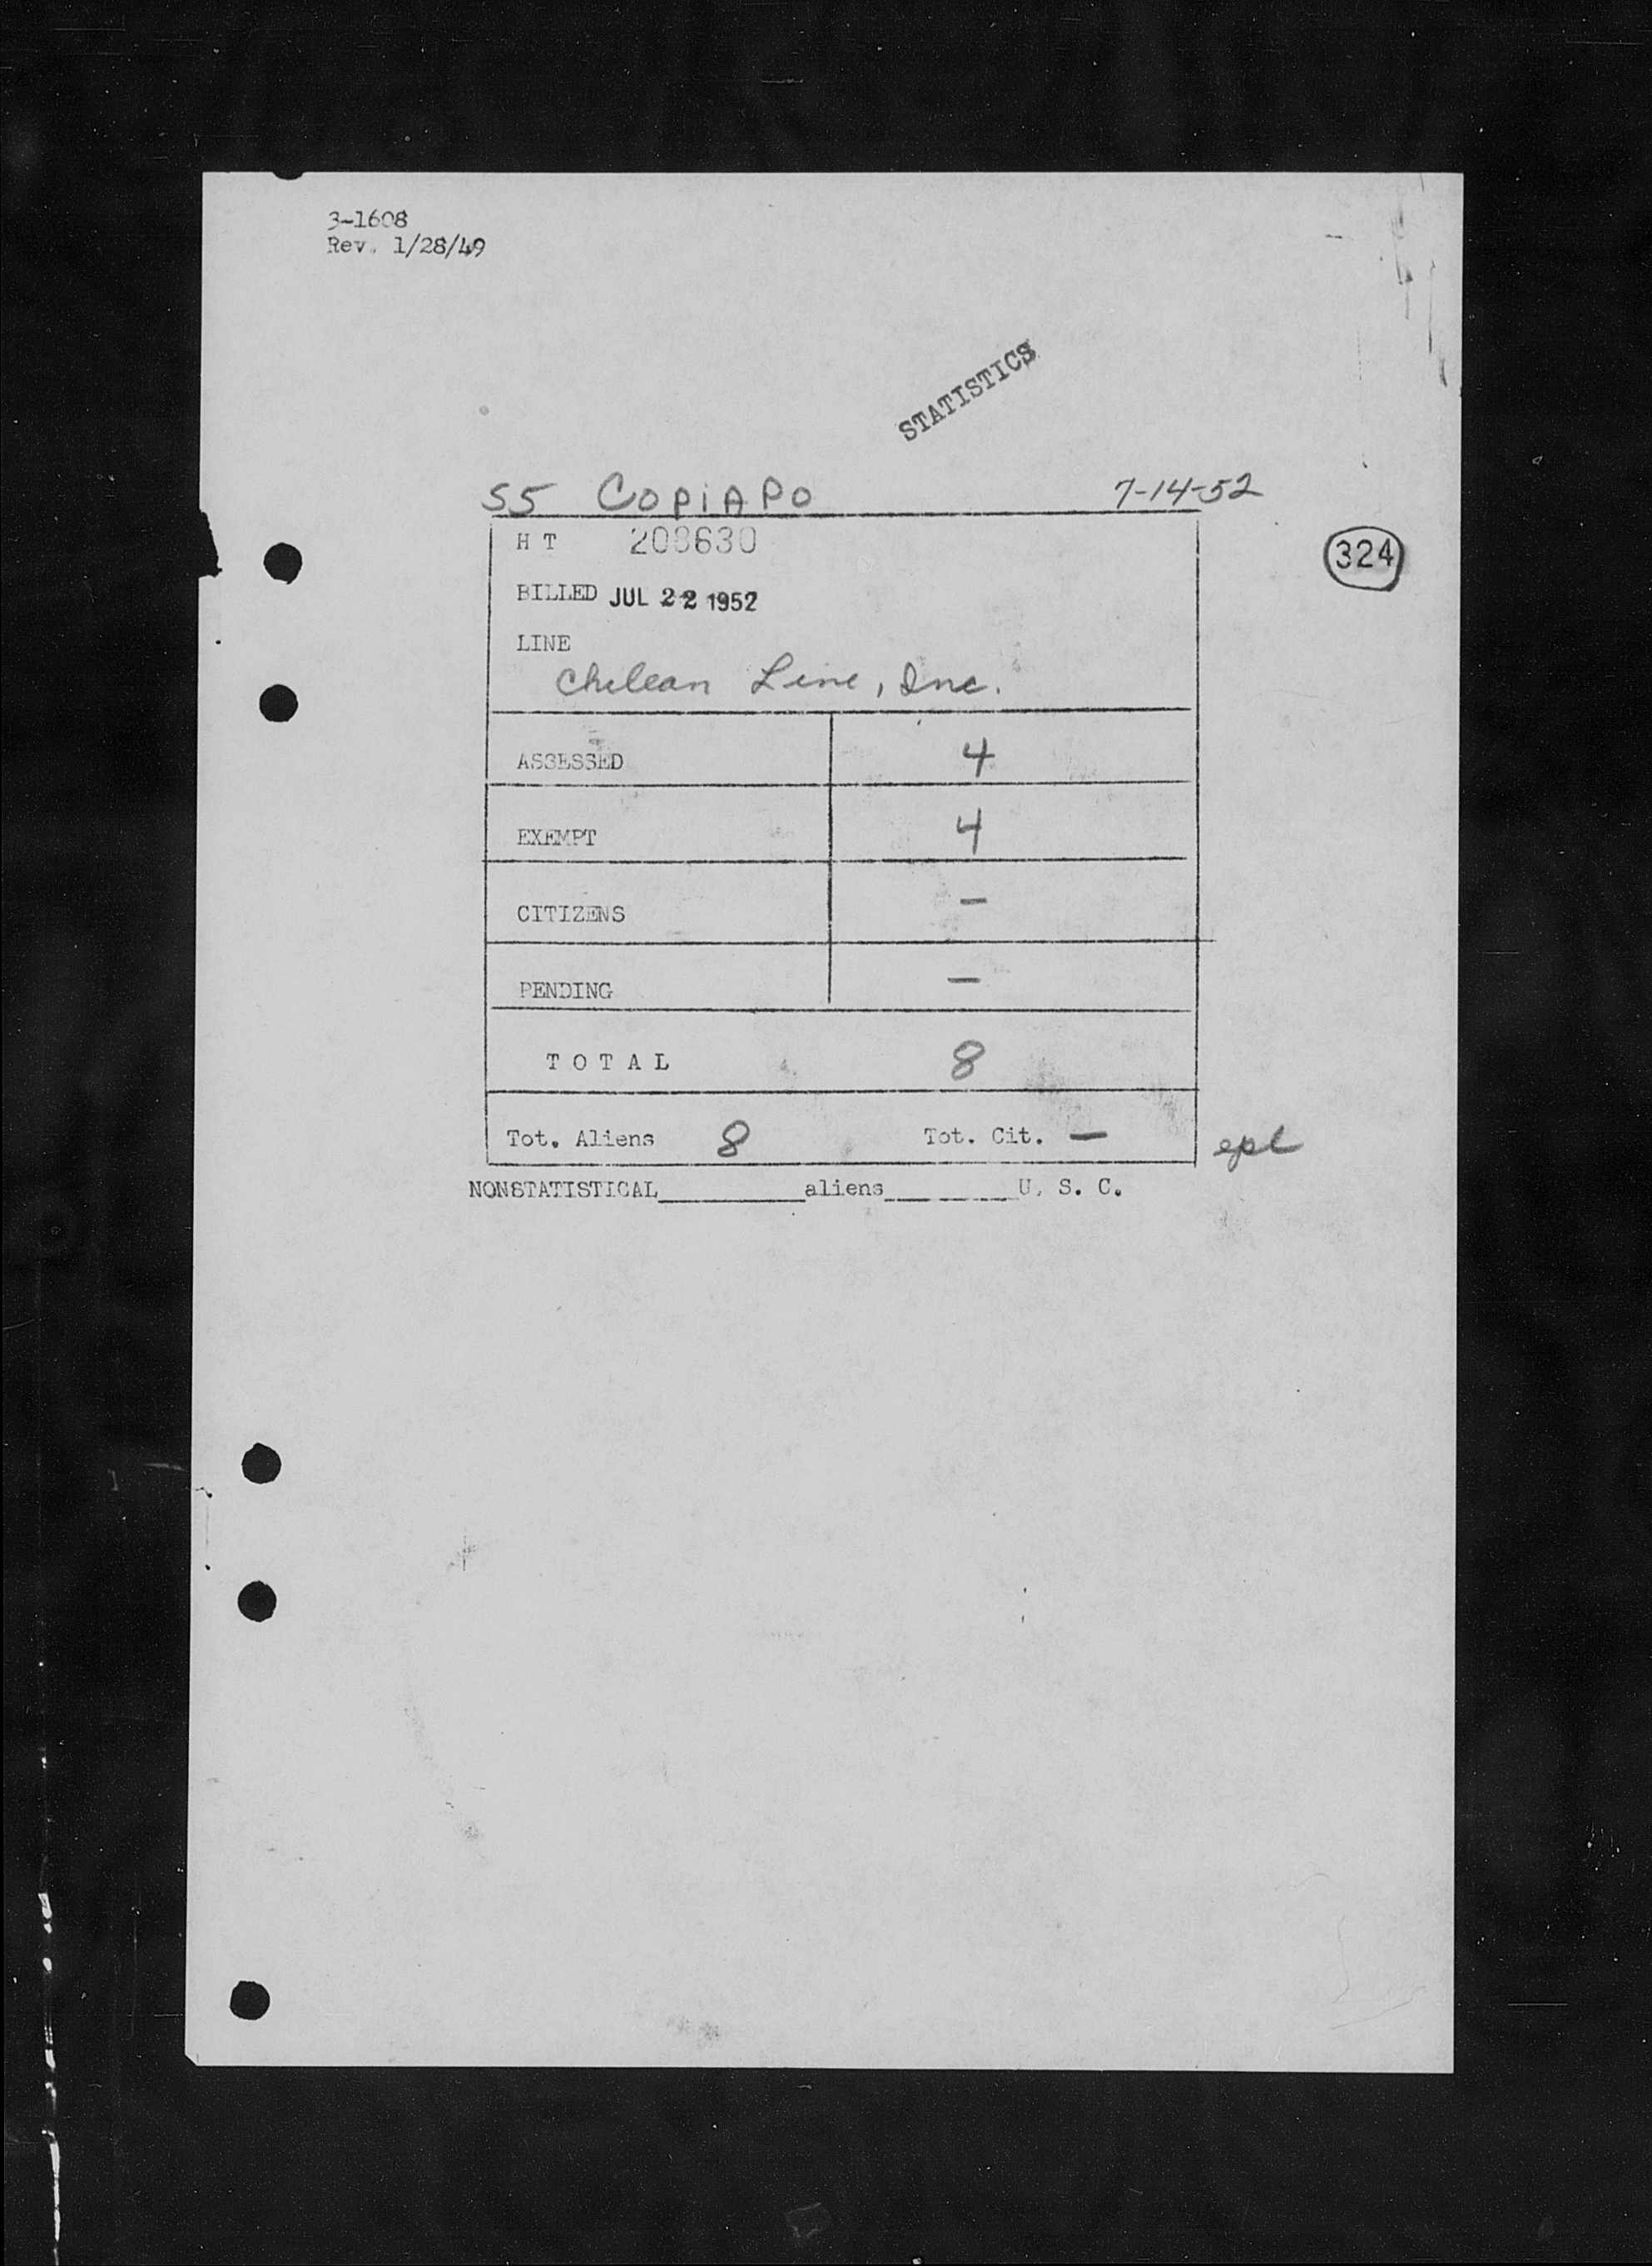 3-1608
Rev. 1/28/49
STATISTICS
SS COPIAPO 7-14-52
H T 208630
324
BILLED JUL 22 1952
LINE
Chilean Line, Inc.
ASSESSED 4
EXEMPT 4
CITIZENS –
PENDING –
T O T A L 8
Tot. Aliens 8 Tot. Cit. –
epl
NONSTATISTICAL__________aliens__________U. S. C.